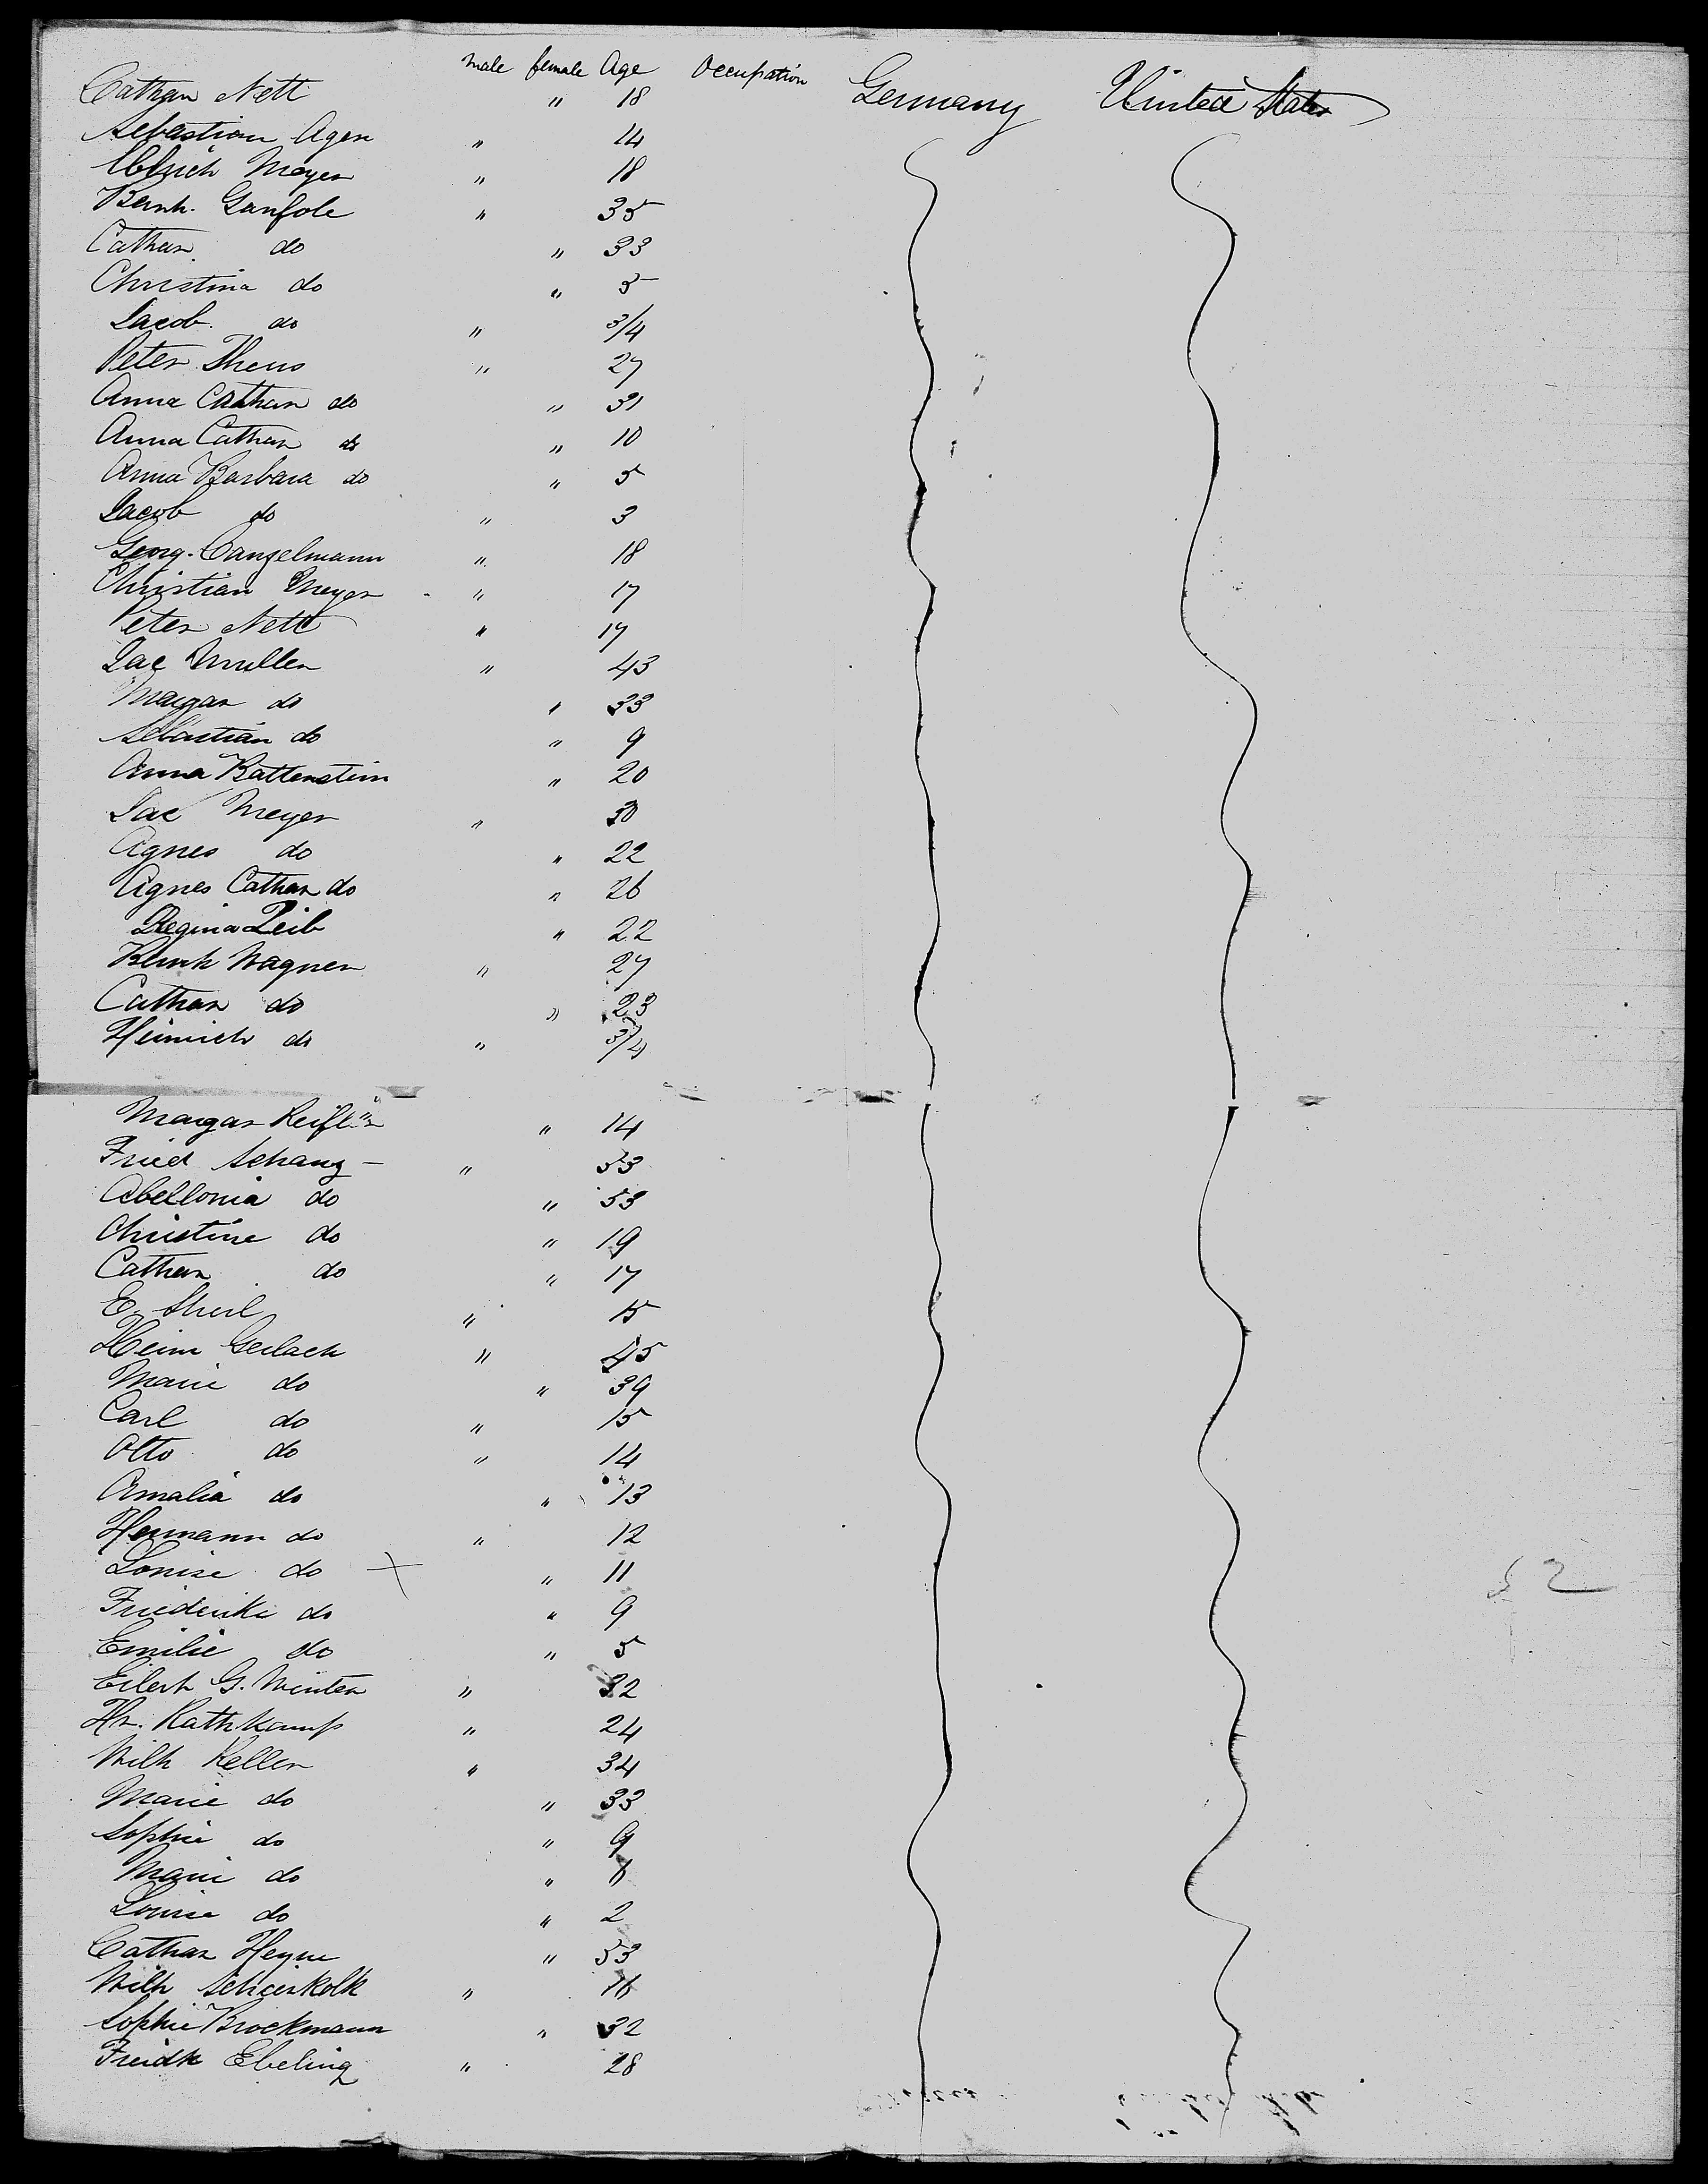 male female Age Occupation
Cathar Nett " 18 Germany United States
Sebastian Agen " 14
Ulrich Meyer " 18
Bernh. Ganfole " 35
Cathar. do " 33
Christina do " 5
Jacob. do " 3/4
Peter Theus " 27
Anna Cathar do " 31
Anna Cathar do " 10
Anna Barbara do " 5
Jacob do " 3
Georg. Canzelmann " 18
Christian Meyer " 17
Peter Nett " 17
Jac Muller " 43
Margar do " 33
Sebastian do " 9
Anna Battenstein " 20
Jac Meyer " 30
Agnes do " 22
Agnes Cathar do " 26
Regina Leib " 22
Bernh Wagner " 27
Cathar do " 23
Heinrich do " 3/4
Margar " 14
Fried Schanz - " 53
Abellonia do " 53
Christine do " 19
Cathar do " 17
E. " 15
Heinr Gerlach " 45
Marie do " 39
Carl do " 15
Otto do " 14
Amalia do " 13
Hermann do " 12
Louise do X " 11
Friederike do " 9
Emilie do " 5
Eilert G. Winter " 32
Hr. Rathkamp " 24
Wilh Keller " 34
Marie do " 33
Sophie do " 9
Marie do " 8
Louise do " 2
Cathar Heyne " 53
Wilh Schierkolk " 16
Sophie Brockmann " 32
Friedk Ebeling " 28